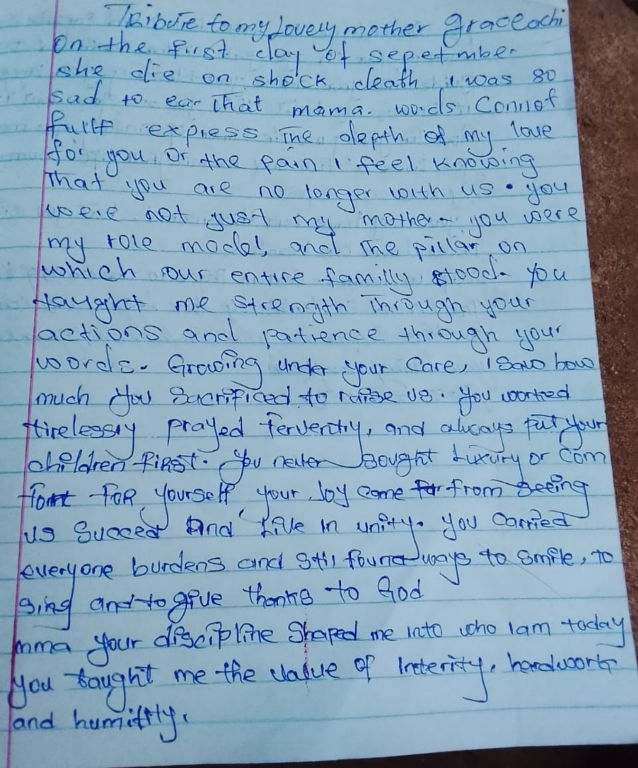 Tribute to my lovely mother graceachi
On the first day of sepetmber
she die on shock death i was so
sad to ear that mama. words Connot
fully express The depth of my love
for you, or the pain I feel knowing
that you are no longer with us. you
were not just my mother. you were
my role model, and the pillar on
which our entire familly stood. You
taught me strength Through your
actions and patience through your
words. Growing under your care, I saw how
much you sacrificed to raise us. you worked
tirelessly prayed ferventlly, and always put your
children first. You never sought Luxury or com
fort FOR yourself your Joy come from seeing
us succeed And live in unity. you carried
everyone burdens and still found ways to smile, to
sing and to give thanks to God
mma your discipline shaped me into who I am today
you taught me the value of Interity, hardwork
and humitity.